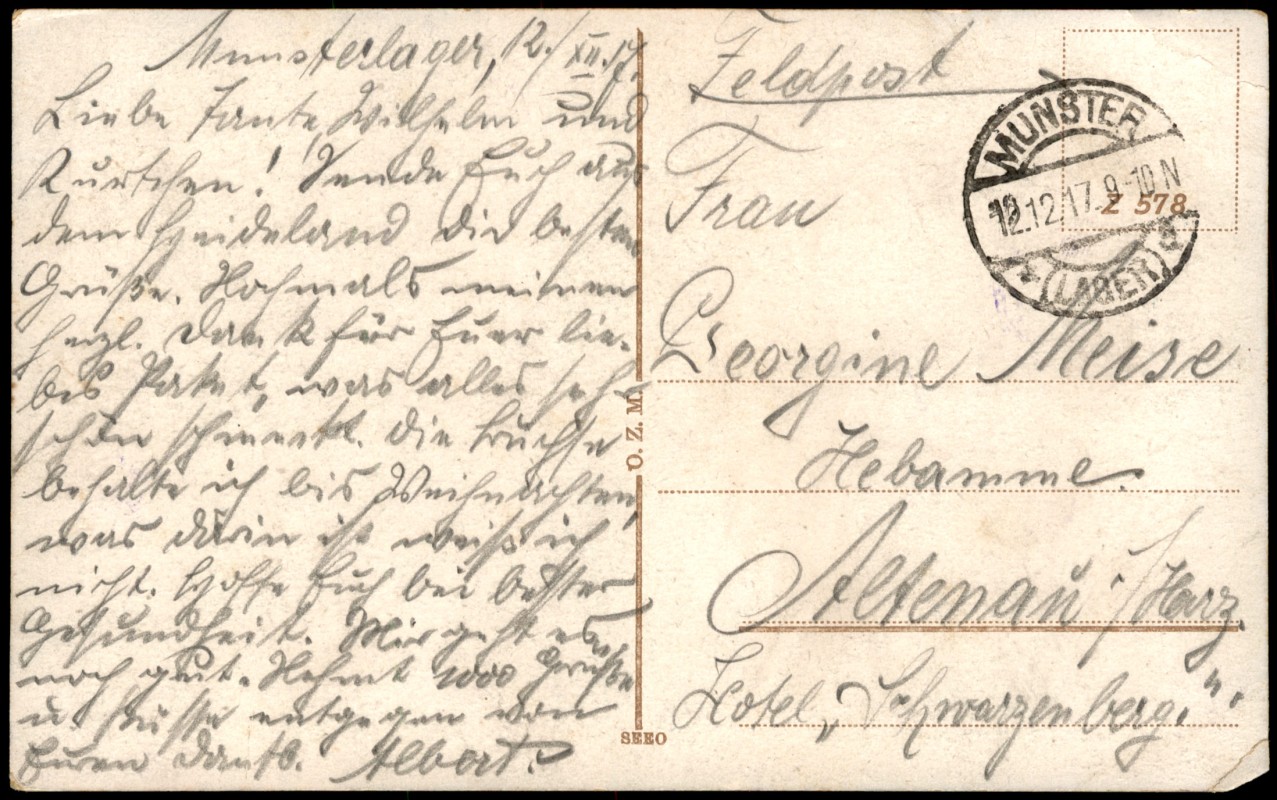 Munsterlager, 12./XII.17.
Liebe Tante, Wilhelm und
Kurtchen! Sende Euch aus
dem Heideland die besten
Grüße. Nochmals meinen
herzl. Dank für Euer lie-
bes Paket, was alles sehr
schön schmeckt. Die Büchse
behalte ich bis Weihnachten,
was darin ist weiß ich
nicht. Hoffe Euch bei bester
Gesundheit. Mir geht es
noch gut. Nehmt 1000 Grüße
u. Küsse entgegen von
Euren dankb. Albert.
O. Z. M.
SEEO
Feldpost
MUNSTER
12.12.17.9-10N
* (LAGER) a
Z 578
Frau
Georgine Meise
Hebamme.
Altenau /Harz.
Hotel „Schwarzenberg."